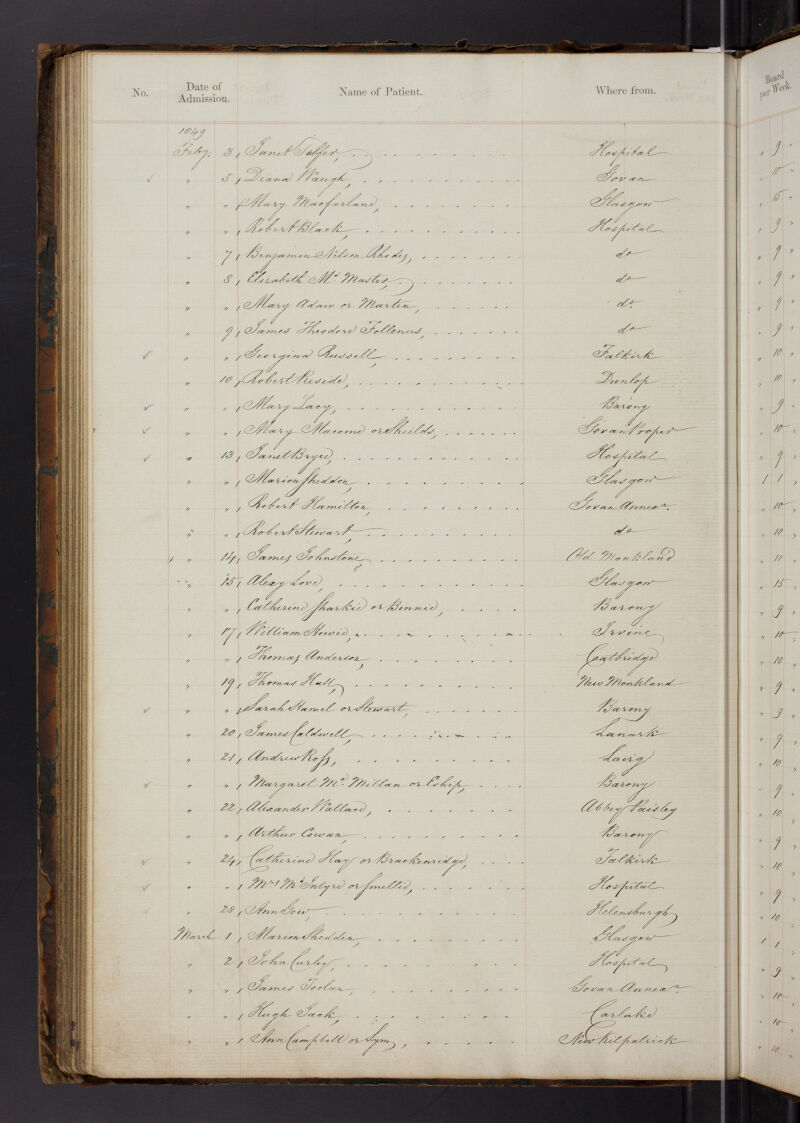 No. Date of Admission. Name of Patient. Where from. Board per Week.
1849
Feby. 3, Janet Telfer, Hospital " 9 "
" 5, Diana Waugh, Govan " 10 "
" ", Mary Macfarland, Glasgow " 15 "
" ", Robert Black, Hospital " 9 "
" 7, Benjamin Nilson Rhodes, do " 9 "
" 8, Elizabeth Mc. Master, do " 9 "
" ", Mary Adair or Martin, do. " 9 "
" 9, James Theodore Follenus, do " 9 "
" ", Georgina Russell, Falkirk " 10 "
" 10, Robert Reside, Dunlop " 10 "
" ", Mary Lacy, Barony " 9 "
" ", Mary Macomie or Shields, Govan Proper " 10 "
" 13, Janet Bryce, Hospital " 9 "
" ", Marion Shedden, Glasgow 1 1 "
" ", Robert Hamilton, Govan Annexn. " 10 "
" ", Robert Stewart, do " 10 "
" 14, James Johnstone, Old Monkland " 10 "
" 15, Alexy Love, Glasgow " 15 "
" ", Catherine Sharkie or Binnie, Barony " 9 "
" 17, William Howie, Irvine " 10 "
" ", Thomas Anderson, Coatbridge " 10 "
" 19, Thomas Hall, New Monkland " 9 "
" ", Sarah Hamel or Stewart, Barony " 9 "
" 20, James Caldwell, Lanark " 9 "
" 21, Andrew Ross, Lairg " 10 "
" ", Margaret Mc. Millan or Eship, Barony " 9 "
" 22, Alexander Wallace, Abbey Paisley " 10 "
" ", Arthur Cowan, Barony " 9 "
" 24, Catherine Hay or Brackenridge, Falkirk " 10 "
" ", Mrs Mc. Intyre or Smellie, Hospital " 9 "
" 28, Ann Gow, Helensburgh " 10 "
March 1, Marion Shedden, Glasgow 1 1 "
" 2, John Curley, Hospital " 9 "
" ", James Toolan, Govan Annexn. " 10 "
" ", Hugh Jack, Carluke " 10 "
" ", Ann Campbell or Sym, New Kilpatrick " 10 "